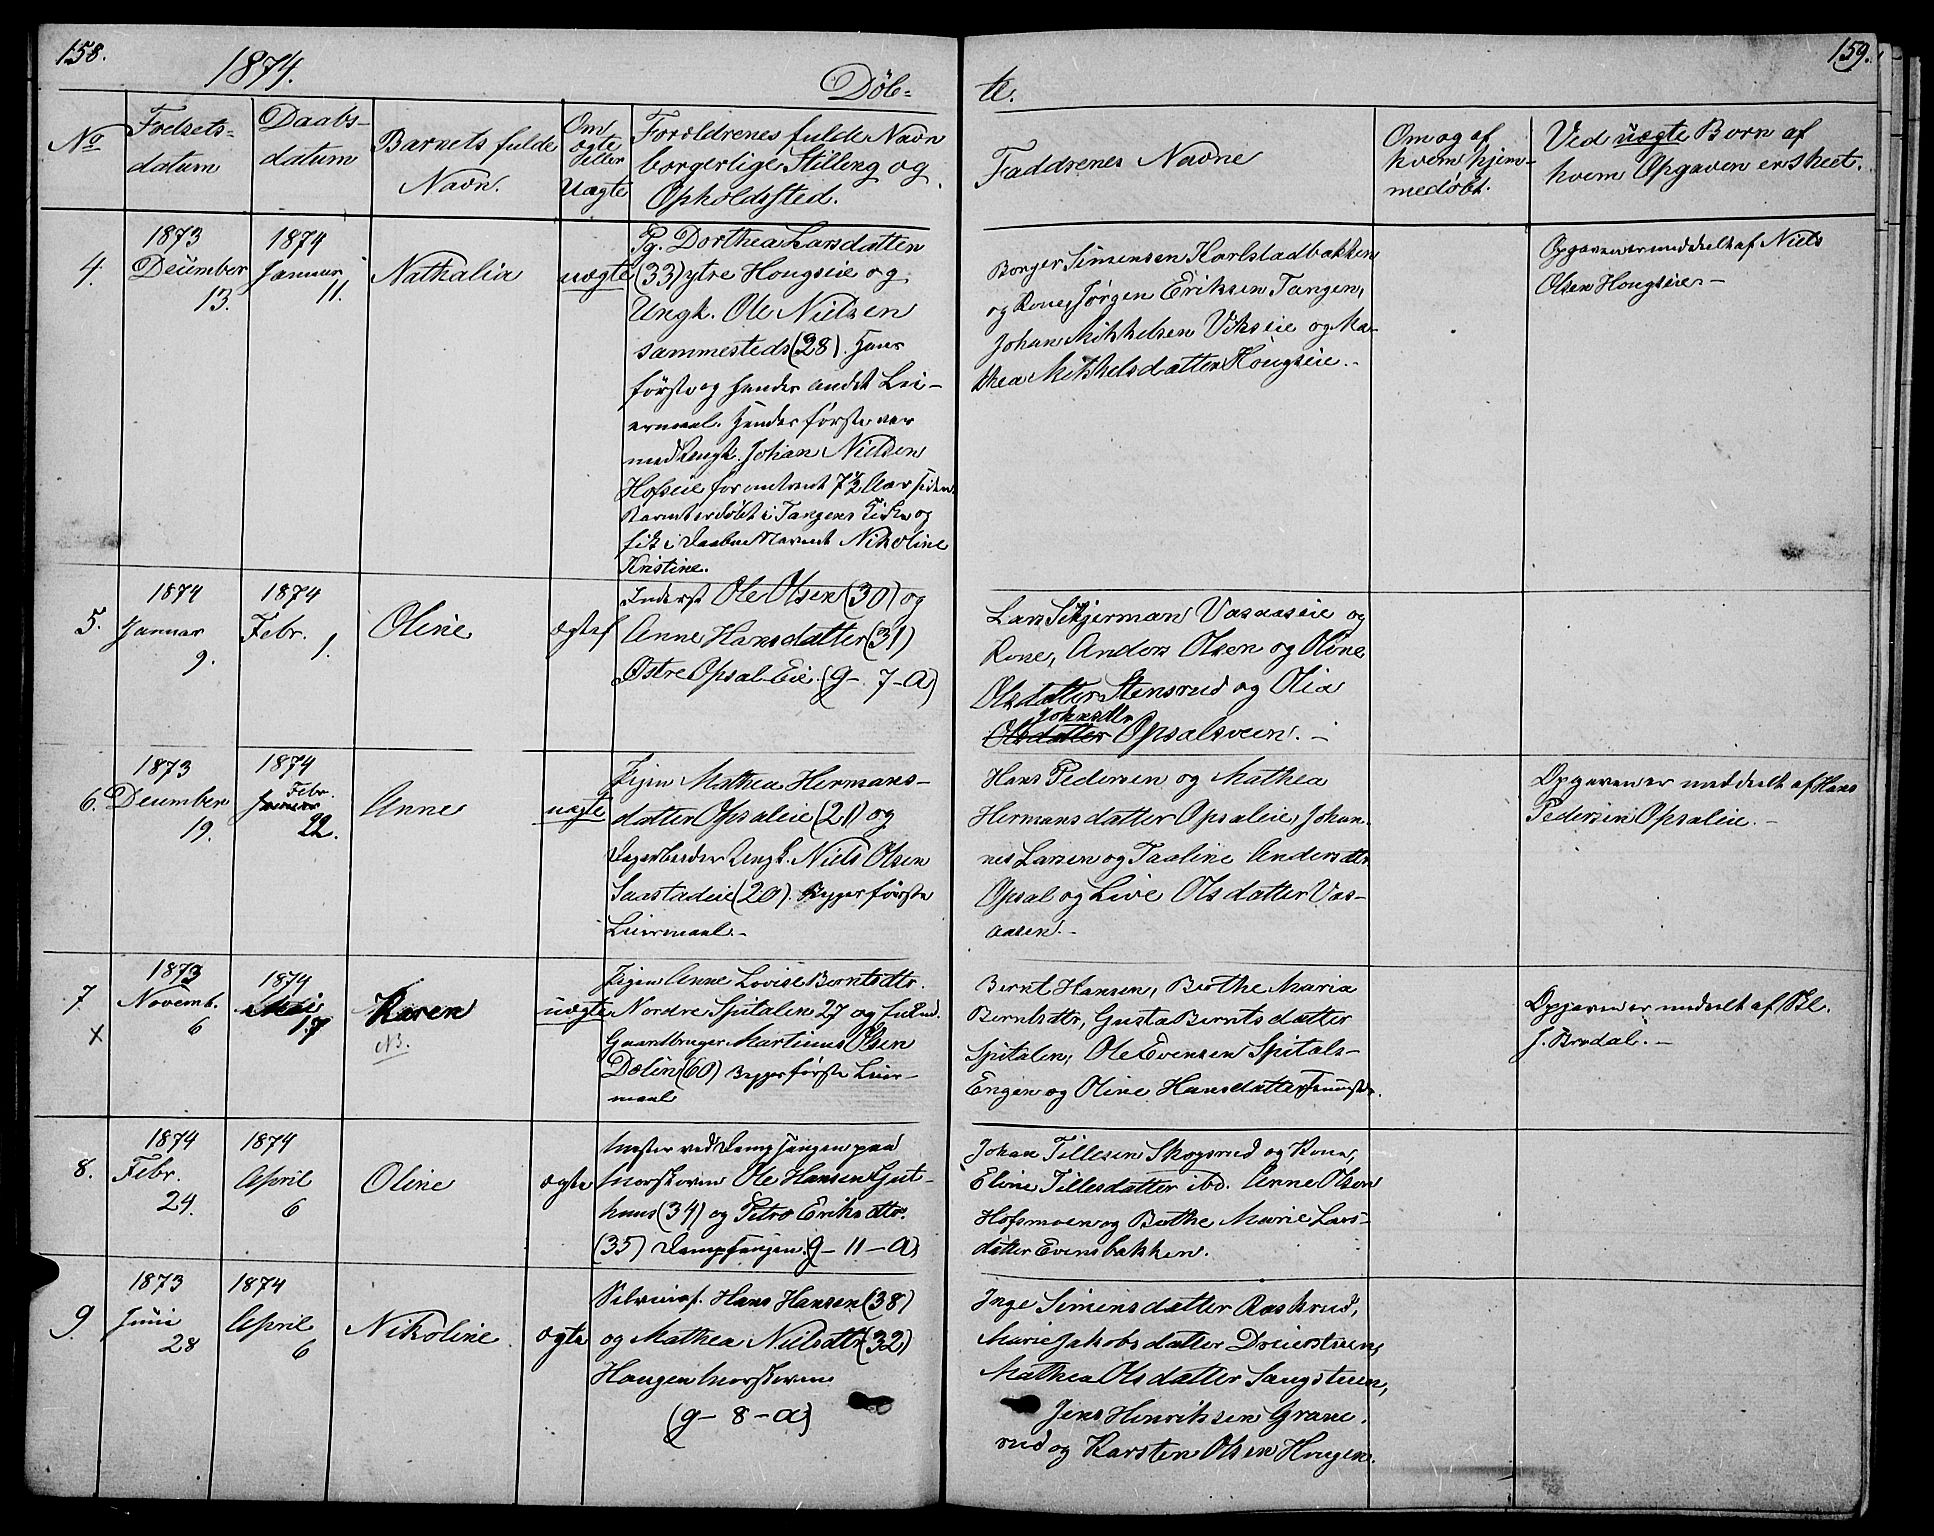 158.
1874.
Døb-
No
Fødsels-
datum
Daabs-
datum
Barnets fulde
Navn.
Om
ægte
eller
Uægte
Forældrenes fulde Navn
borgerlige Stilling og
Opholdssted.
4.
1873
December
13.
1874
Januar
11.
Nathalia
uægte
Pg. Dorthea Larsdatter
(33) ytre Hougseie og
Ungk. Ole Nielsen
sammesteds (28). Hans
første og hendes andet Lei-
ermaal. Hendes første var
med Ungk. Johan Nielsen
Hofseie for omtrent 7½ Aar siden.
Barnet er døbt i Tangens Kirke og
fik i Daaben Navnet Nikoline
Kristine.
5.
1874
Januar
9.
1874
Febr.
1.
Oline
ægtef
Inderst Ole Olsen (30) og
Anne Hansdatter (31)
Østre Opsal-Eie. (g- 7-a)
6.
1873
December
19.
1874
Febr.
Januar
22.
Anne
uægte
Pigen Mathea Hermans-
datter Opsaleie (21) og
Dagarbeider Ungk. Niels Olsen
Saastadeie (20). Begges første
Leiermaal.-
7.
x
1873
Novemb.
6
1874
Mai
17
Karen
NB.
uægte
Pigen Anne Lovise Berntsdtr.
Nordre Spitalen 27 og
Gaardbruger Martinus Olsen
Dælin (60) Begges første Leier-
maal
8.
1874
Febr.
24.
1874
April
6
Oline
ægte
Mester ved Dampsaugen paa
Morskoven Ole Hansen Gjut-
huus (34) og Petra Eriksdtr.
(35) Dampsaugen. (g- 11-a)
9.
1873
Juni
28
1874
April
6
Nikoline
ægte
Selveierf. Hans Hansen (38)
og Mathea Nielsdtr (32)
Haugen Morskoven
(g- 8-a)
159.
te.
Faddrenes Navne
Om og af
hvem hjem-
medøbt.
Ved uægte Børn af
hvem Opgaven er skeet.
Borger Simensen Karlstadbakken
og Kone, Jørgen Eriksen Tangen,
Johan Mikkelsen Vikseie og Ma-
thea Mikkelsdatter Hougseie.-
Opgaven er meddeelt af Niels
Olsen Hougseie.-
Lars Skjerman Vasaaseie og
Kone, Anders Olsen og Oline
Olsdatter Stensrud og Olia
Johnsdtr
Olsdatter Opsalsveen.-
Hans Pedersen og Mathea
Hermansdatter Opsaleie, Johan-
nes Larsen og Taaline Andersdtr
Opsal og Live Olsdatter Vas-
aasen.-
Opgaven er meddeelt af Hans
Pedersen Opsaleie.-
Bernt Hansen, Berthe Maria
Berntsdtr, Gusta Berntsdatter
Spitalen, Ole Evensen Spitals-
Engen og Oline Hansdatter
Opgaven er meddelt af
J. Brodal.-
Johan Tillesen Skogsrud og Kone,
Eline Tillesdatter ibd. Anne Olsen
Hofsmoen og Berthe Marie Lars-
datter Evensbakken.
Inge Simensdatter Raskrud,
Marie Jakobsdatter Dreiersteen,
Mathea Olsdatter Saugsteen,
Jens Henriksen Grane-
rud og Karsten Olsen Haugen.